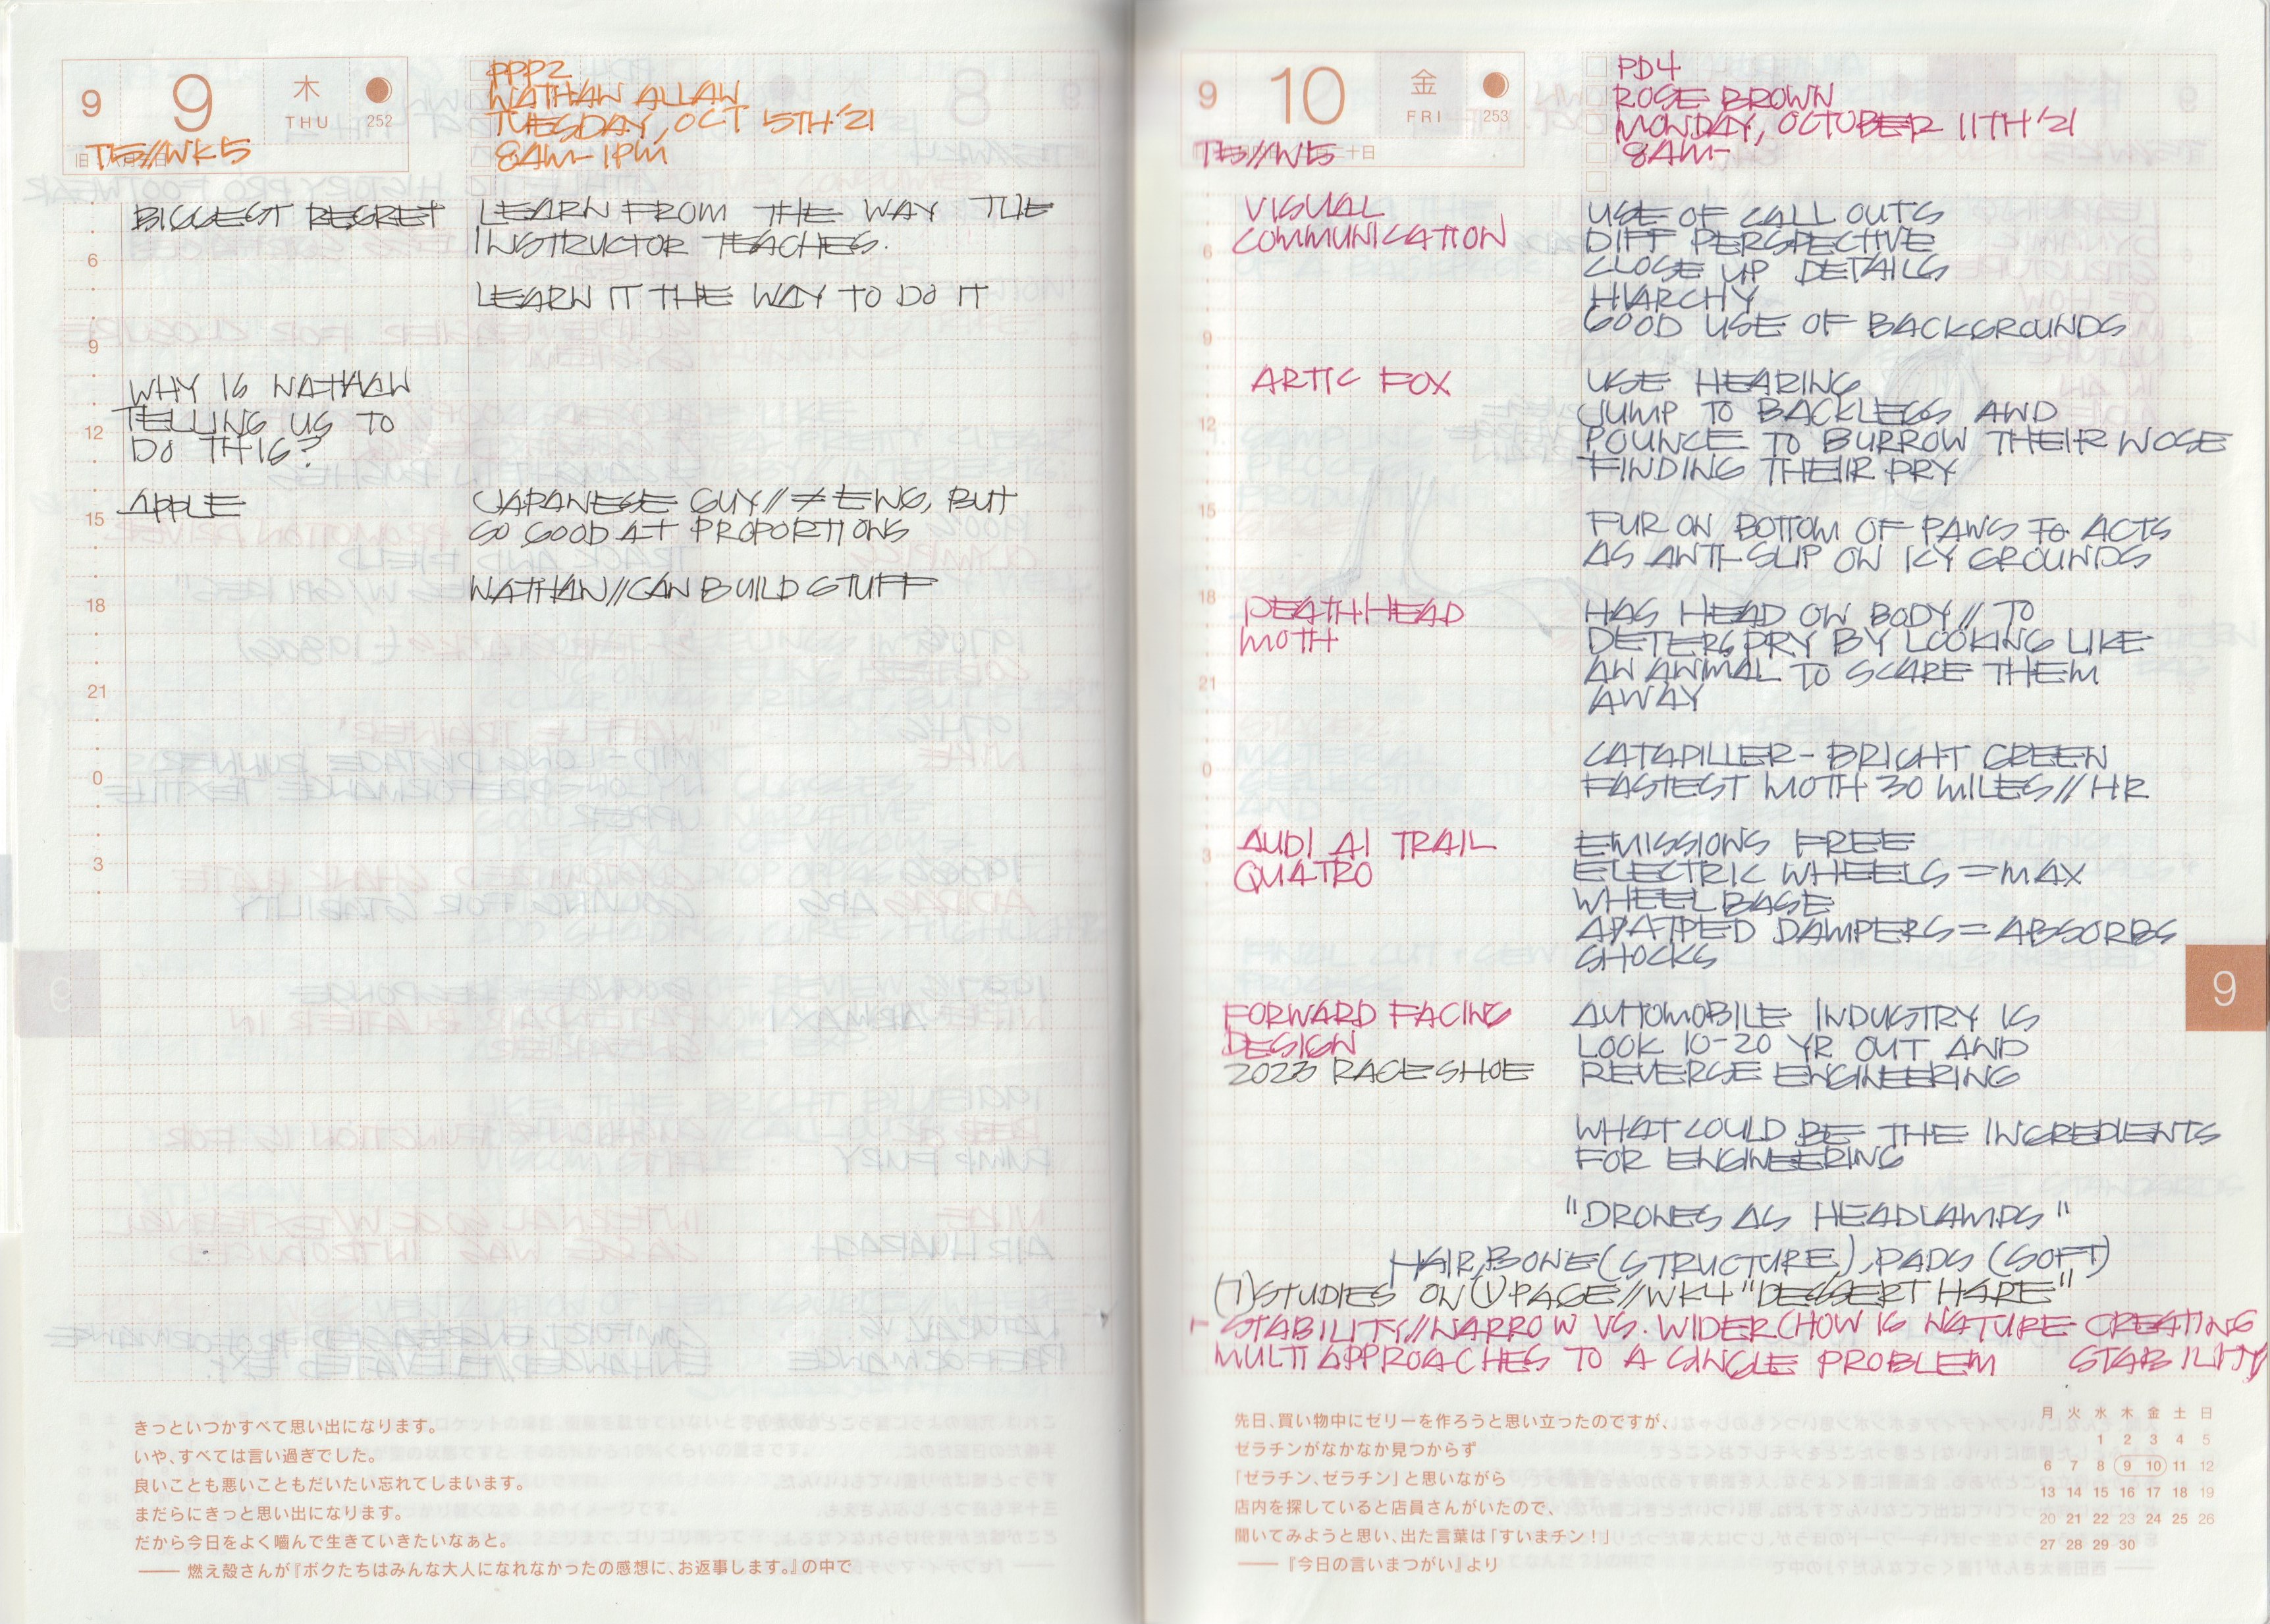 9 9 木 THU 252
T5//WK5
PPP2
NATHAN ALLAN
TUESDAY, OCT 15TH '21
8AM-1PM
BIGGEST REGRET
LEARN FROM THE WAY THE
INSTRUCTOR TEACHES.
LEARN IT THE WAY TO DO IT
WHY IS NATHAN
TELLING US TO
DO THIS?
APPLE
JAPANESE GUY // ≠ ENG, BUT
SO GOOD AT PROPORTIONS
NATHAN // CAN BUILD STUFF
6
9
12
15
18
21
0
3
9
きっといつかすべて思い出になります。
いや、すべては言い過ぎでした。
良いことも悪いこともだいたい忘れてしまいます。
まだらにきっと思い出になります。
だから今日をよく噛んで生きていきたいなぁと。
—— 燃え殻さんが『ボクたちはみんな大人になれなかったの感想に、お返事します。』の中で
9 10 金 FRI 253
T5//W5
PD4
ROSE BROWN
MONDAY, OCTOBER 11TH '21
8AM-
VISUAL
COMMUNICATION
USE OF CALL OUTS
DIFF PERSPECTIVE
CLOSE UP DETAILS
HIARCHY
GOOD USE OF BACKGROUNDS
ARTIC FOX
USE HEARING
JUMP TO BACKLEGS AND
POUNCE TO BURROW THEIR NOSE
FINDING THEIR PRY
FUR ON BOTTOM OF PAWS TO ACTS
AS ANTI-SLIP ON ICY GROUNDS
DEATH HEAD
MOTH
HAS HEAD ON BODY // TO
DETERS PRY BY LOOKING LIKE
AN ANIMAL TO SCARE THEM
AWAY
CATAPILLER - BRIGHT GREEN
FASTEST MOTH 30 MILES // HR
AUDI AI TRAIL
QUATRO
EMISSIONS FREE
ELECTRIC WHEELS = MAX
WHEEL BASE
APATPED DAMPERS = ABSORBS
SHOCKS
FORWARD FACING
DESIGN
2023 RACE SHOE
AUTOMOBILE INDUSTRY IS
LOOK 10-20 YR OUT AND
REVERSE ENGINEERING
WHAT COULD BE THE INGREDIENTS
FOR ENGINEERING
"DRONES AS HEADLAMPS"
HAIR, BONE (STRUCTURE), PADS (SOFT)
(7) STUDIES ON (1) PAGE // WK4 "DESSERT HARE"
- STABILITY // NARROW VS. WIDER CHOW IS NATURE CREATING
MULTI APPROACHES TO A SINGLE PROBLEM STABILITY
6
9
12
15
18
21
0
3
9
先日、買い物中にゼリーを作ろうと思い立ったのですが、
ゼラチンがなかなか見つからず
「ゼラチン、ゼラチン」と思いながら
店内を探していると店員さんがいたので、
聞いてみようと思い、出た言葉は「すいまチン！」
——『今日の言いまつがい』より
月 火 水 木 金 土 日
1 2 3 4 5
6 7 8 9 10 11 12
13 14 15 16 17 18 19
20 21 22 23 24 25 26
27 28 29 30